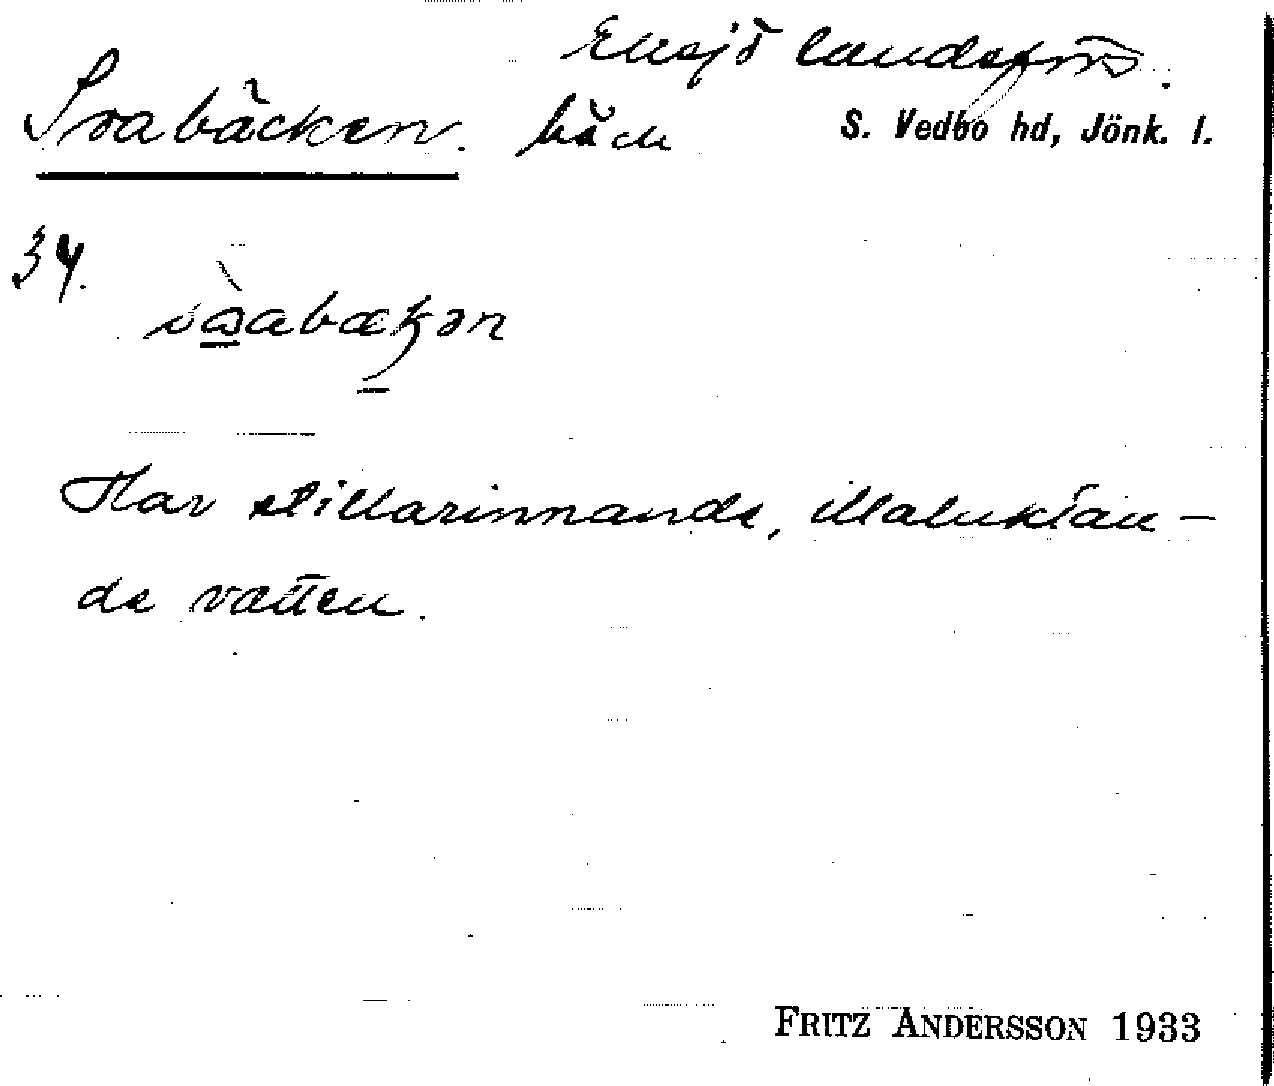 Eksjö landsförs.
Svabäcken. bäck
S. Vedbo hd, Jönk. l.
34.
Har stillarinnande, illaluktan-
de vatten.
FRITZ ANDERSSON 1933